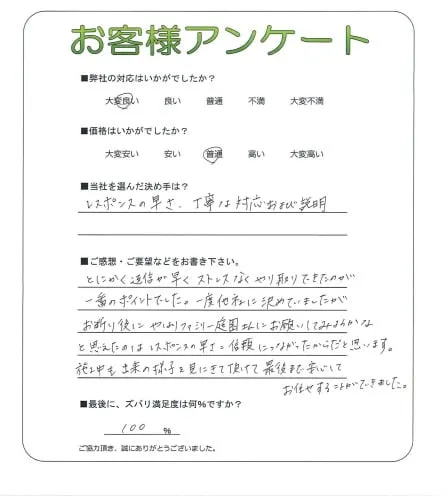 お客様アンケート
■弊社の対応はいかがでしたか？
大変良い 良い 普通 不満 大変不満
■価格はいかがでしたか？
大変安い 安い 普通 高い 大変高い
■当社を選んだ決め手は？
レスポンスの早さ、丁寧な対応および説明
■ご感想・ご要望などをお書き下さい。
とにかく返信が早くストレスなくやり取りできたのが
一番のポイントでした。一度他社に決めていましたが
お断り後にやはりファミリー庭園さんにお願いしてみようかな
と思えたのはレスポンスの早さ=信頼につながったからだと思います。
施工中も出来の様子を見にきて頂けて最後まで安心して
お任せすることができました。
■最後に、ズバリ満足度は何%ですか？
100 %
ご協力頂き、誠にありがとうございました。